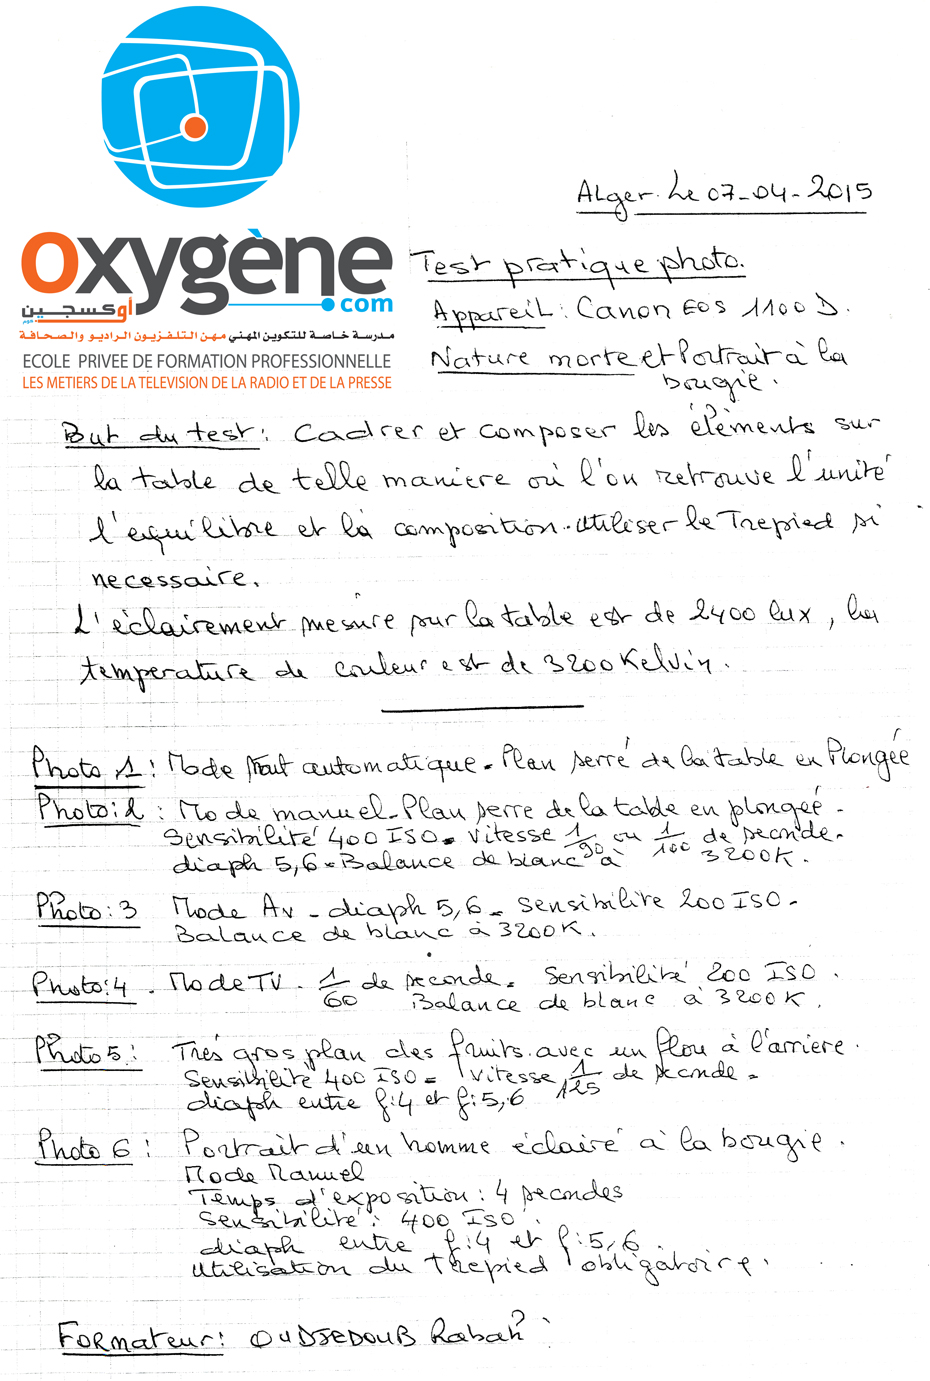 Alger. Le 07-04-2015
oxygène
.com
أوكسجين
.com
مدرسة خاصة للتكوين المهني مهن التلفزيون الراديو والصحافة
ECOLE PRIVEE DE FORMATION PROFESSIONNELLE
LES METIERS DE LA TELEVISION DE LA RADIO ET DE LA PRESSE
Test pratique photo.
Appareil : Canon EOS 1100 D.
Nature morte et Portrait à la
bougie.
But du test : Cadrer et composer les éléments sur
la table de telle manière où l'on retrouve l'unité
l'equilibre et la composition. Utiliser le Trepied si
necessaire.
L'éclairement mesure sur la table est de 2400 lux, la
température de couleur est de 3200 Kelvin.
Photo 1 : Mode tout automatique - Plan serré de la table en Plongée
Photo : 2 : Mode manuel - Plan serre de la table en plongeé -
Sensibilité 400 ISO - Vitesse 1/90 ou 1/100 de seconde -
diaph 5,6 - Balance de blanc à 3200K.
Photo : 3 Mode Av - diaph 5,6 - Sensibilite 200 ISO -
Balance de blanc à 3200K.
Photo : 4 - Mode TV - 1/60 de seconde - Sensibilité 200 ISO .
Balance de blanc à 3200K.
Photo 5 : Trés gros plan des fruits avec un flou à l'arriere .
Sensibilité 400 ISO - Vitesse 1/125 de seconde -
diaph entre f:4 et f:5,6
Photo 6 : Portrait d'un homme éclairé à la bougie .
Mode Manuel
Temps d'exposition : 4 secondes
Sensibilité : 400 ISO .
diaph entre f:4 et f:5,6.
Utilisation du Trepied obligatoire.
Formateur : OUDJEDOUB Rabah